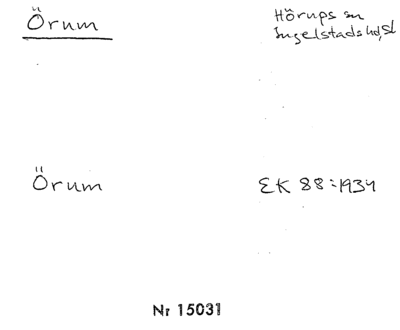 Örum
Hörups sn
Ingelstads hd, Sk
Örum
EK 88:1934
Nr 15031